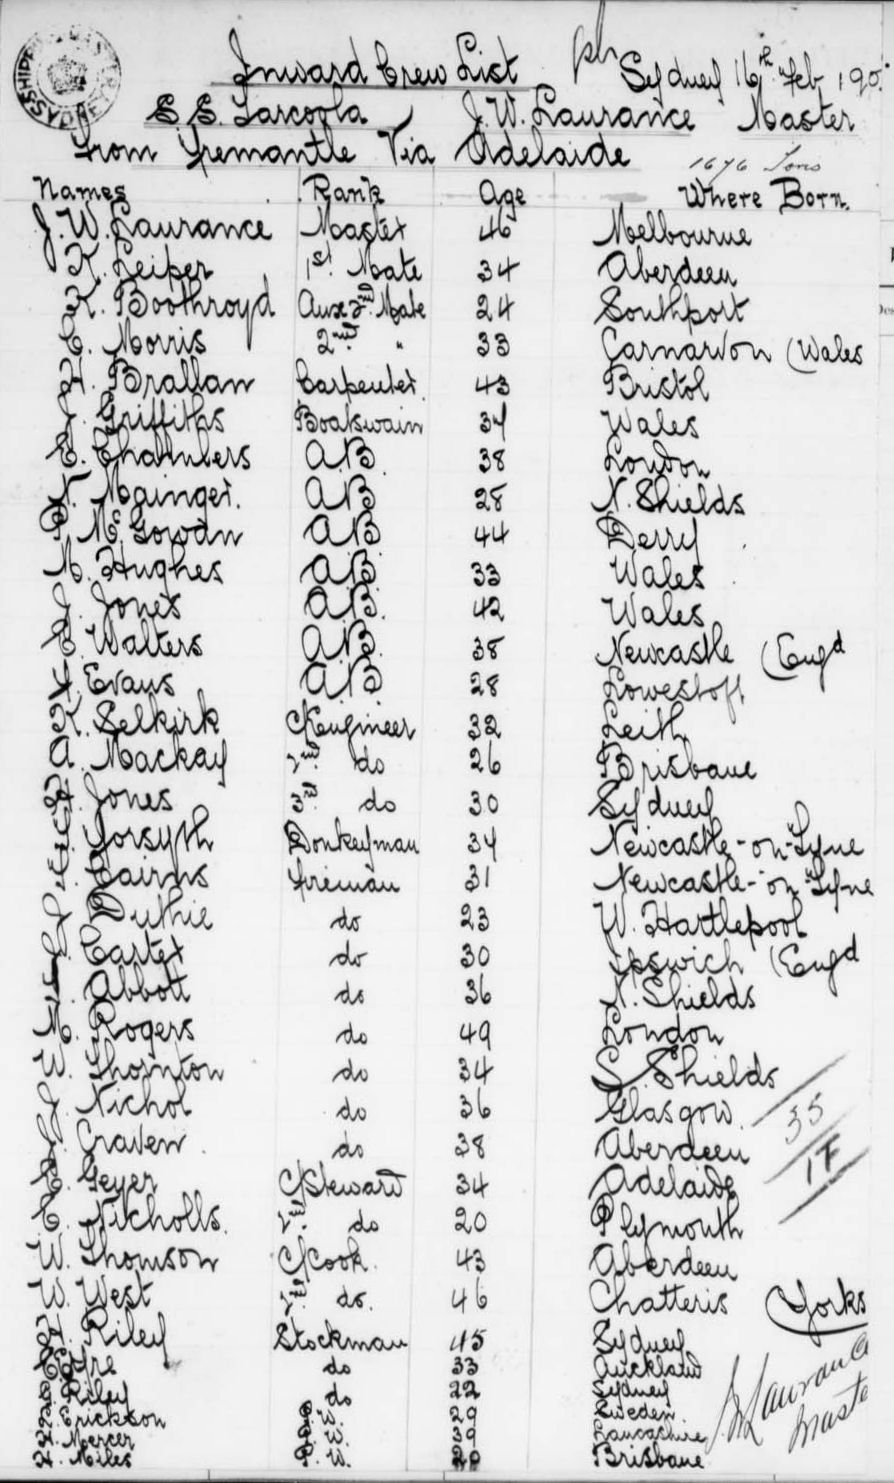 Inward Crew List Sydney 16th Feb 190
S.S. Tarcoola, J.W. Laurance Master
from Fremantle Via Adelaide
1676 Tons
Names Rank Age Where Born.
J. W. Laurance Master 46 Melbourne
K. Leiper 1st Mate 34 Aberdeen
K. Boothroyd Aux 2nd Mate 24 Southport
C. Morris 2nd " 33 Carnarvon (Wales
H. Brallan Carpenter 43 Bristol
J. Griffiths Boatswain 34 Wales
E. Chambers AB 38 London
N. Mainger. AB 28 N. Shields
P. McGowan AB 44 Derry
M. Hughes AB 33 Wales
J. Jones AB 42 Wales
C. Walters AB 38 Newcastle (Engd
Evans AB 28 Lowestoft
K. Selkirk C/Engineer 32 Leith
A. Mackay 2nd do 26 Brisbane
Jones 3rd do 30 Sydney
Forsyth Donkeyman 34 Newcastle-on-Tyne
Cairns Fireman 31 Newcastle-on-Tyne
Duthie do 23 W. Hartlepool
Carter do 30 Ipswich (Engd
Abbott do 36 N. Shields
Rogers do 49 London
Thornton do 34 S. Shields
J. Nichol do 36 Glasgow
Craven do 38 Aberdeen
35
1F
Geyer C/Steward 34 Adelaide
Nicholls. 2nd do 20 Plymouth
W. Thomson C/Cook. 43 Aberdeen
W. West 2nd do. 46 Chatteris (Yorks
Riley Stockman 45 Sydney
Eyre do 33 Auckland
Riley do 22 Sydney
Erickson P. W. 29 Sweden.
Mercer P. W. 39 Lancashire
H. Miles P. W. Brisbane
J W Laurance
Master